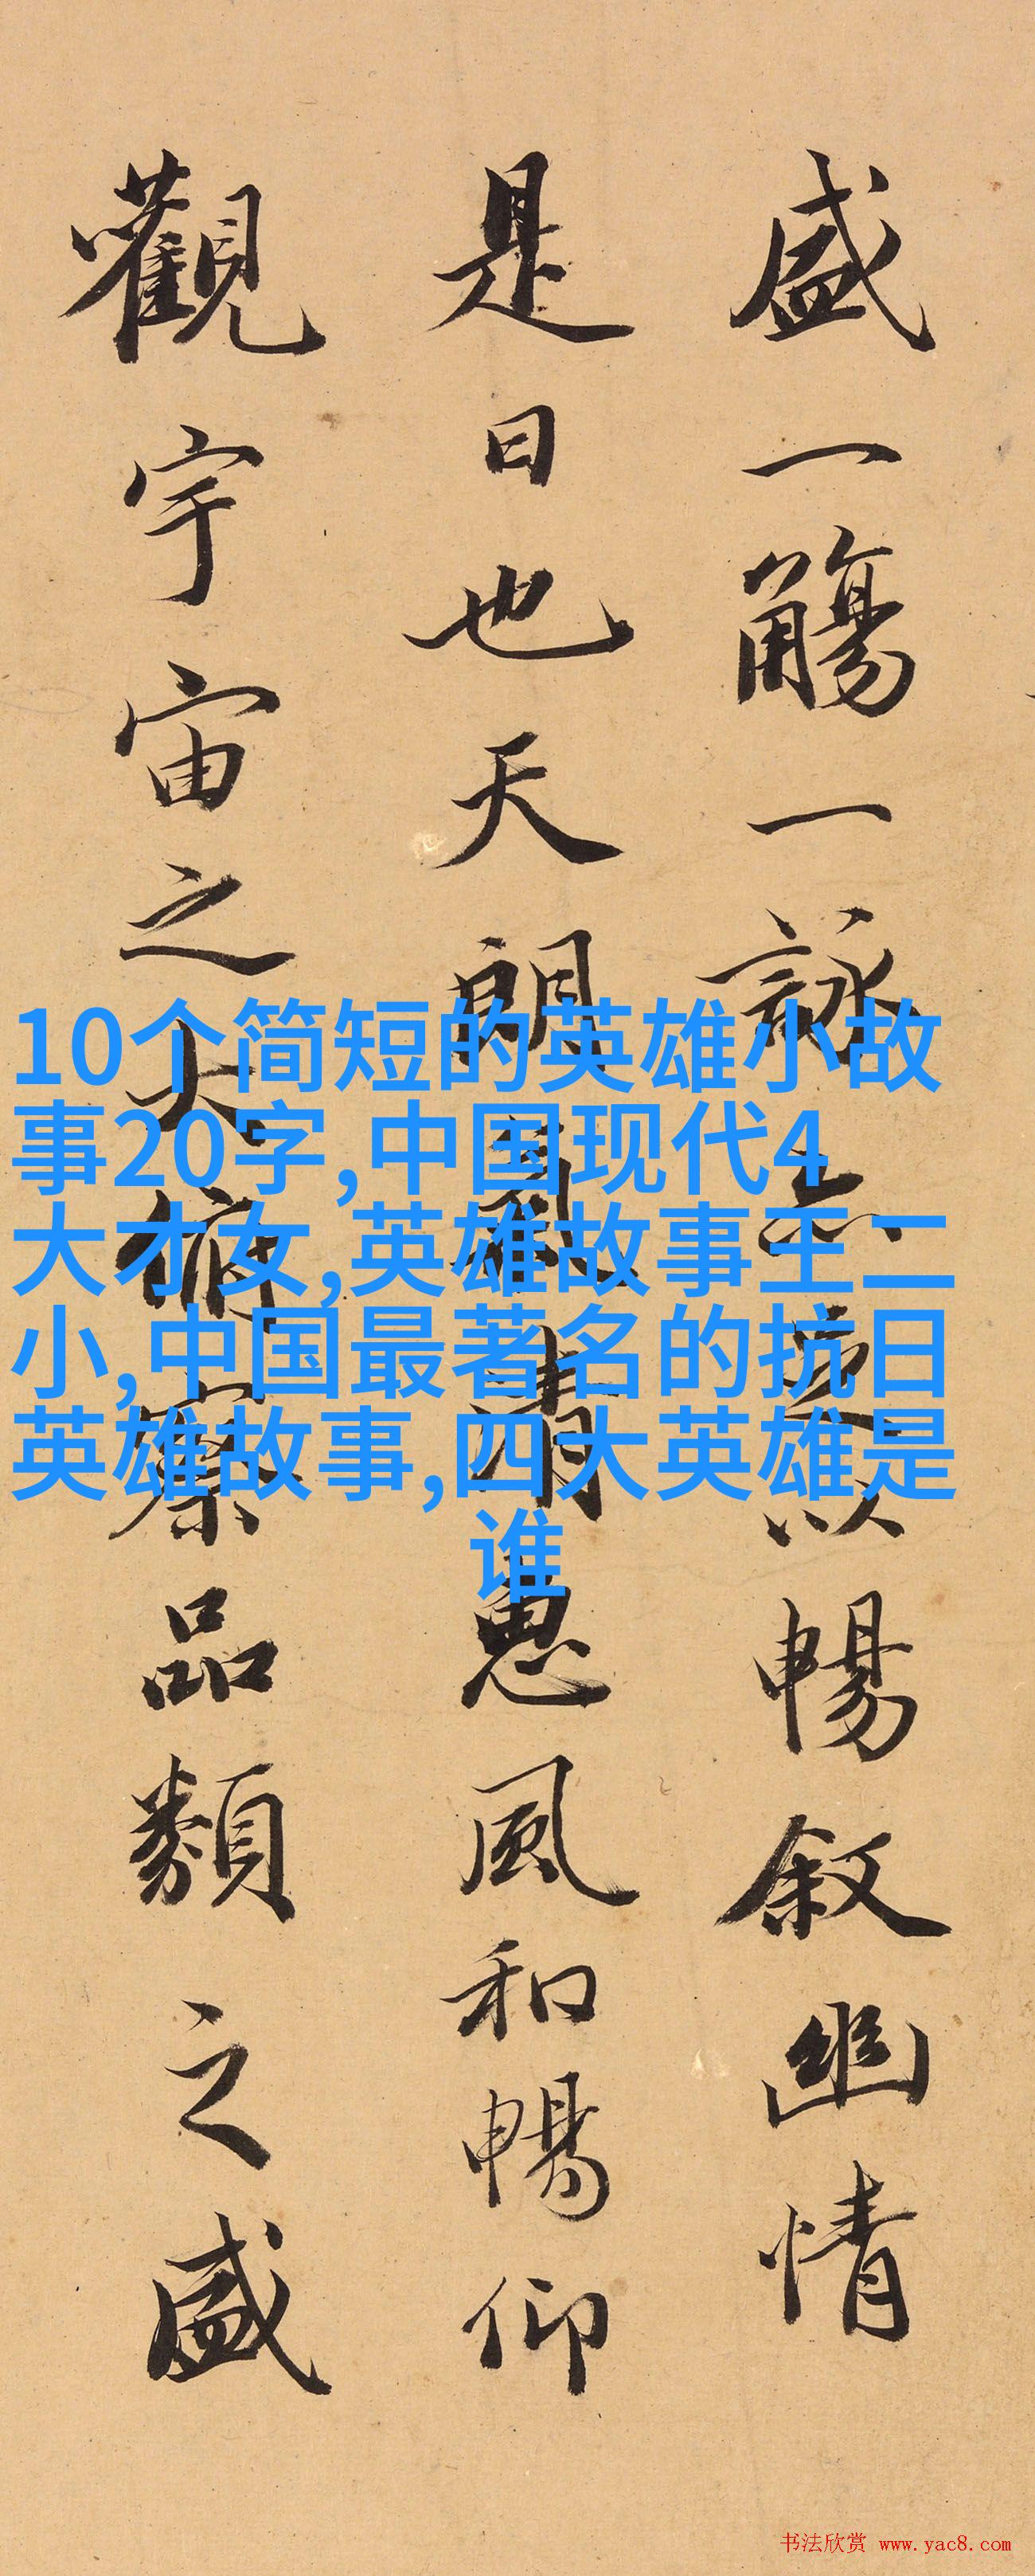 盛一觴一詠亦足以暢叙幽情
是日也天朗氣清惠風和暢仰
觀宇宙之大俯察品類之盛
10个简短的英雄小故
事20字,中国现代4
大才女,英雄故事王二
小,中国最著名的抗日
英雄故事,四大英雄是
谁
书法欣赏 www.yac8.com